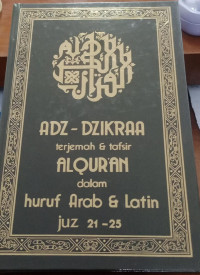 ADZ - DZIKRAA
terjemah & tafsir
ALQUR'AN
dalam
huruf Arab & Latin
juz 21 - 25